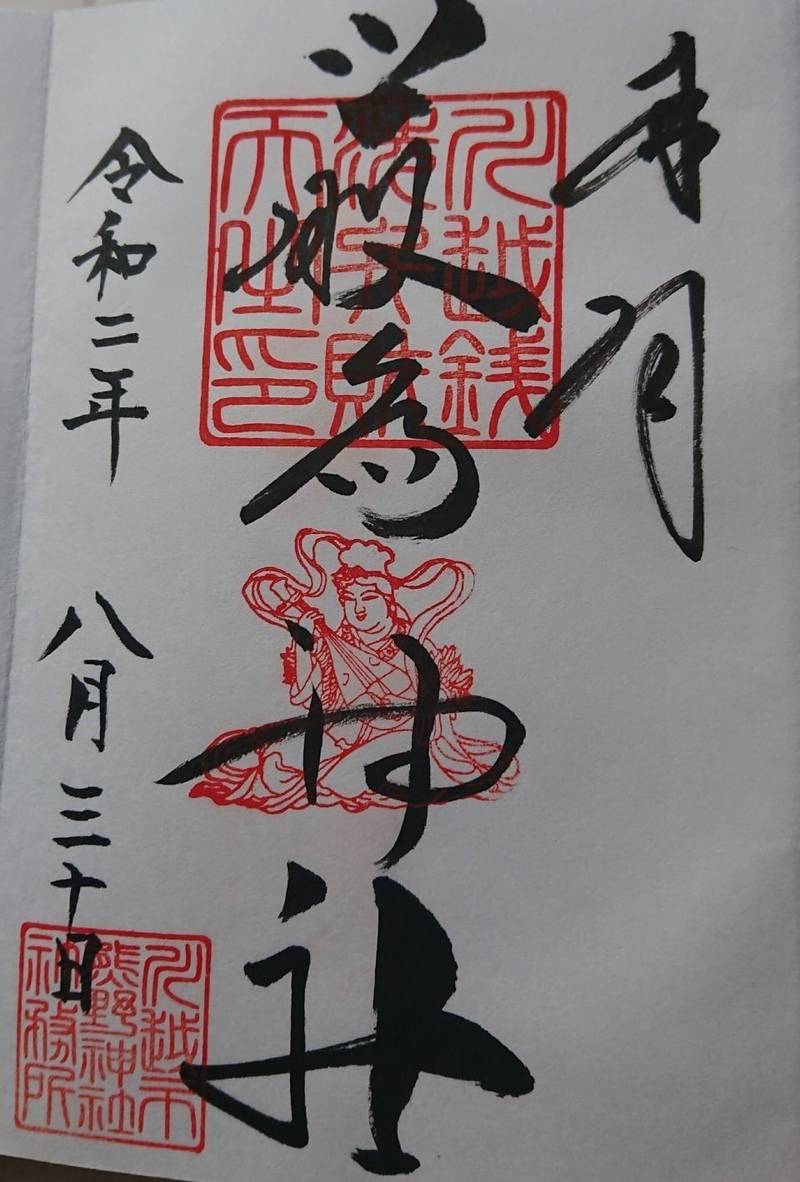 奉拝
川越銭
洗弁財
天之印
嚴島神社
令和二年 八月三十日
川越市
熊野神社
社務所